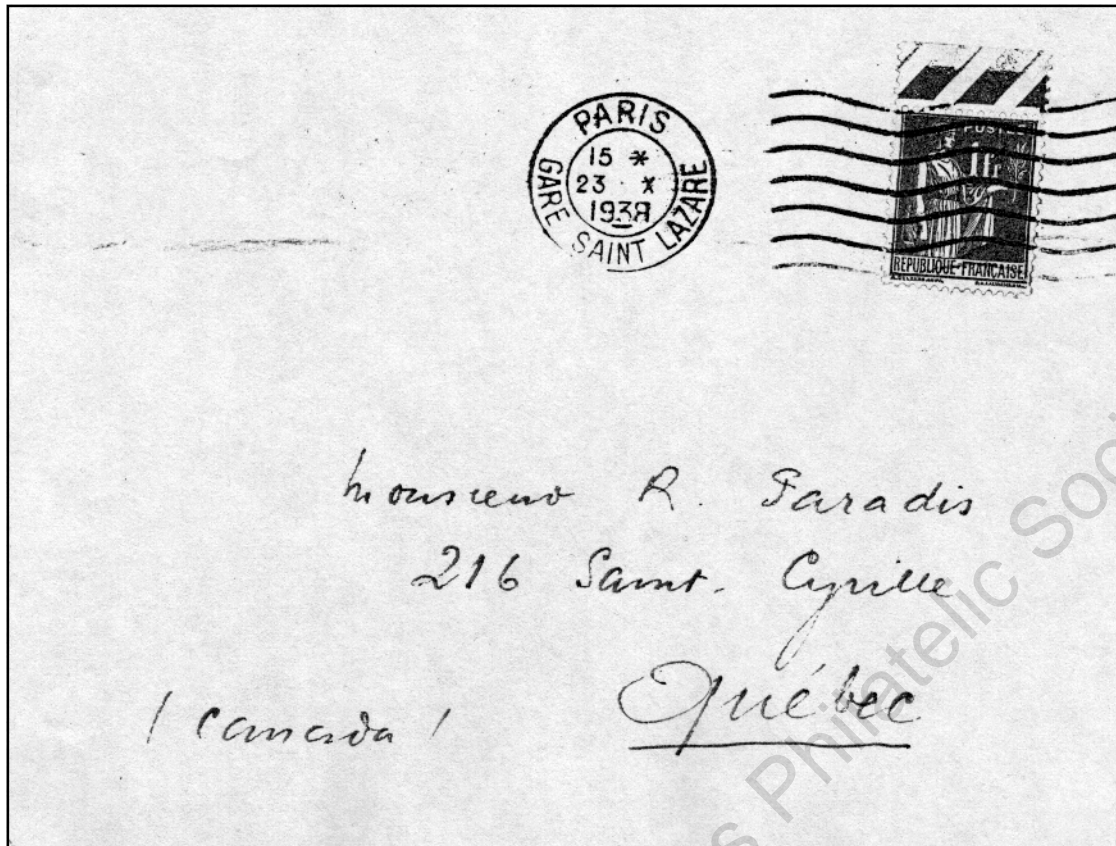 PARIS
15 *
23 X
1938
GARE SAINT LAZARE
POSTES
REPUBLIQUE FRANÇAISE
Monsieur R. Paradis
216 Saint. Cyrille
Québec
( Canada )
s Philatelic Soci